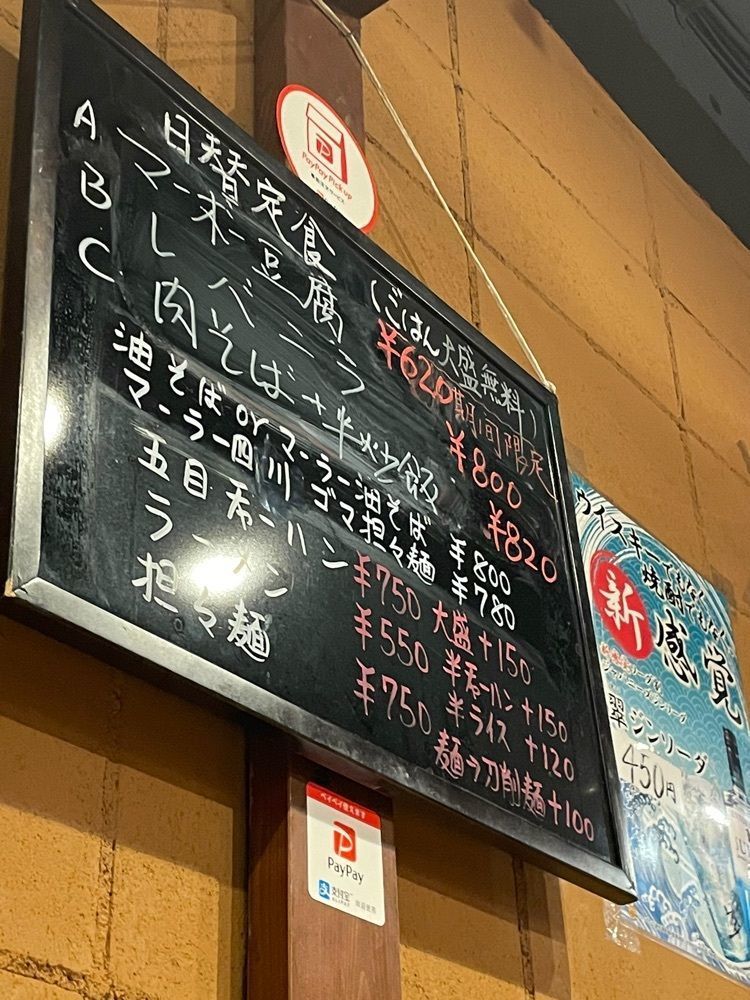 日替定食 (ごはん大盛無料)
A マーボー豆腐 ¥620 期間限定
B レバニラ ¥800
C 肉そば+半炒飯 ¥820
油そば or マーラー油そば ¥800
マーラー四川ゴマ担々麺 ¥780
五目チャーハン ¥750 大盛+150
ラーメン ¥550 半チャーハン+150
担々麺 ¥750 半ライス+120
麺→刀削麺+100
PayPay Pick up
ペイペイ使えます
PayPay
支付宝
ウイスキーでもなく
焼酎でもなく
新感覚
翠ジンソーダ
450円